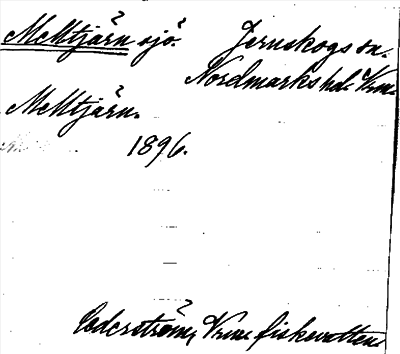 Mektjärn sjö. Jernskogs sn.
Nordmarks hd. Vrm.
Mektjärn.
1896.
Cederström, Vrml. fiskevatten